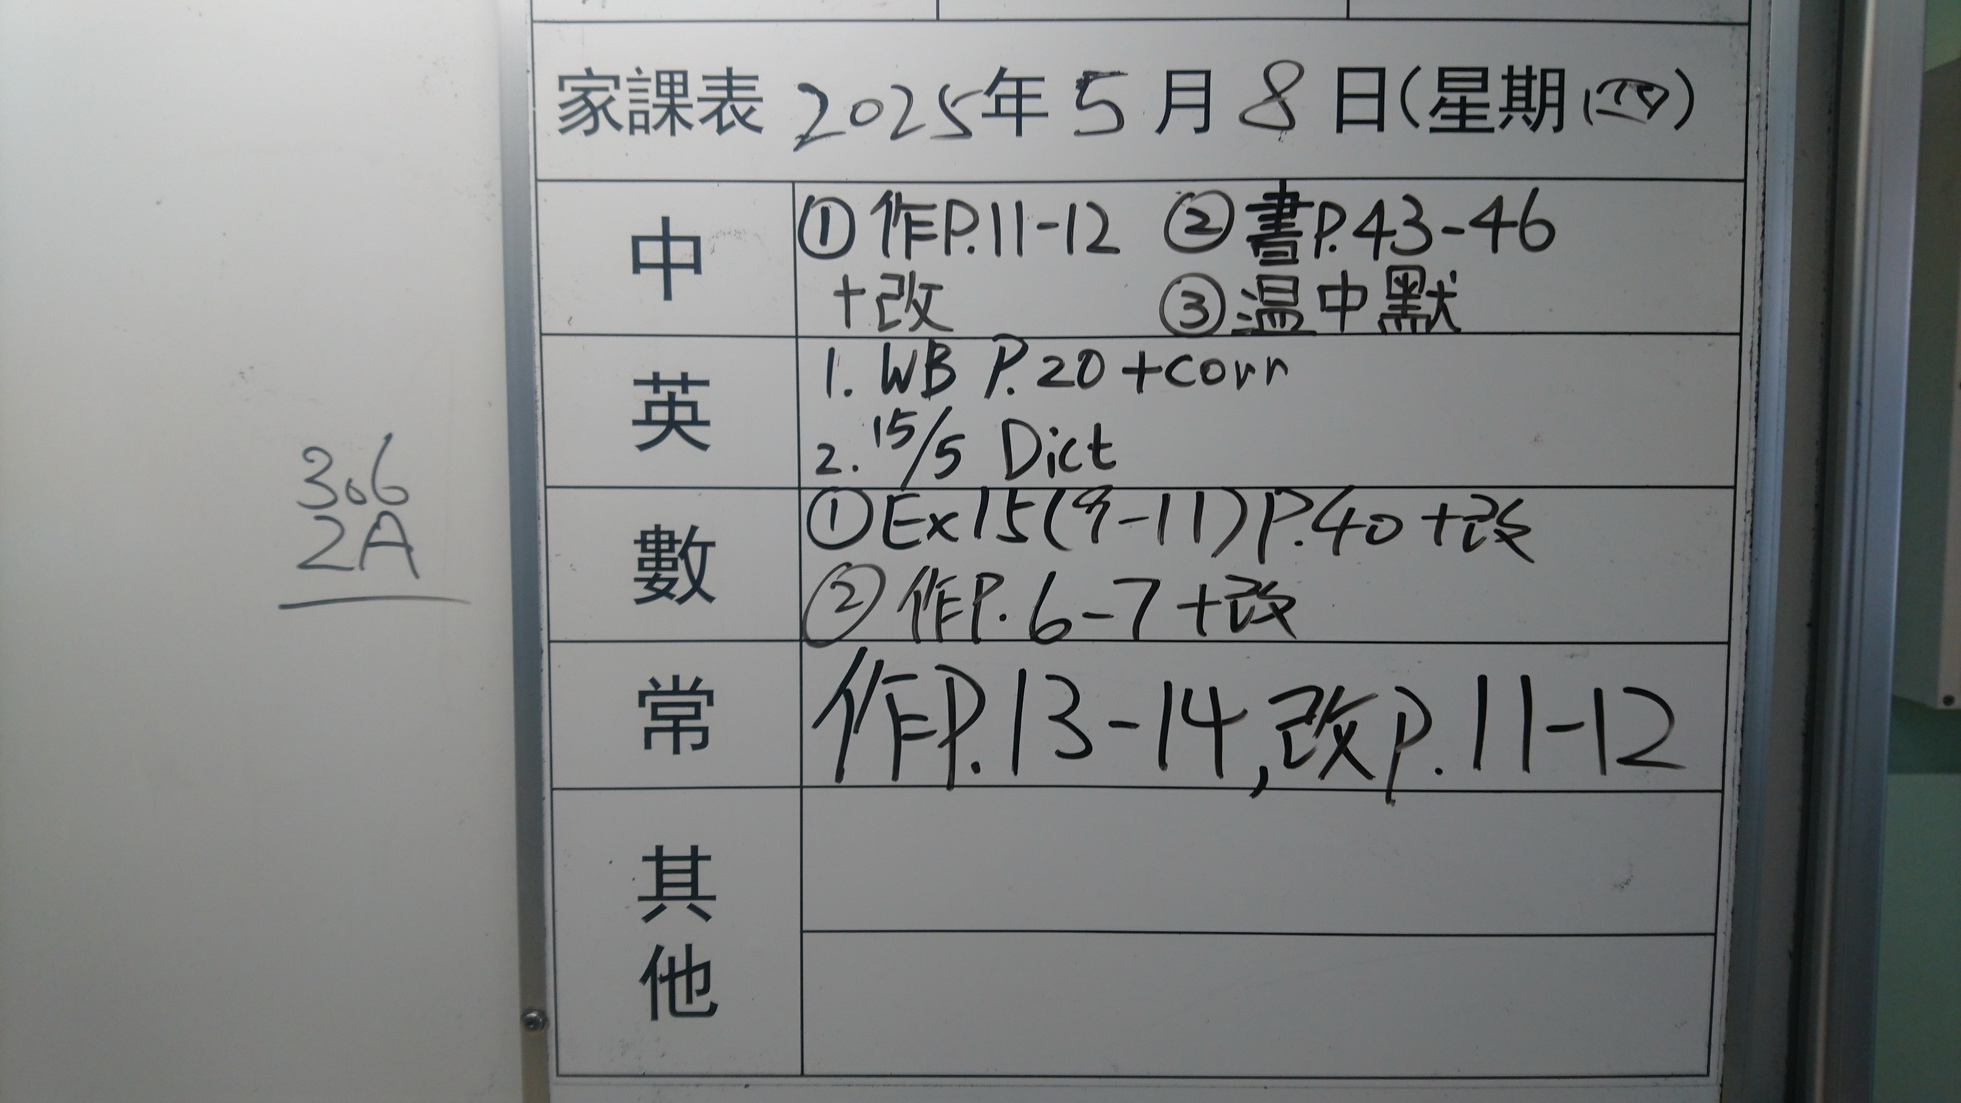 家課表 2025年 5 月 8 日(星期四)
中
① 作P.11-12 ② 書P.43-46
+改 ③ 温中默
英
1. WB P.20 +corr
2. 15/5 Dict
數
① Ex15(9-11)P.40 +改
② 作P.6-7 +改
常
作P.13-14,改P.11-12
其他
306
2A